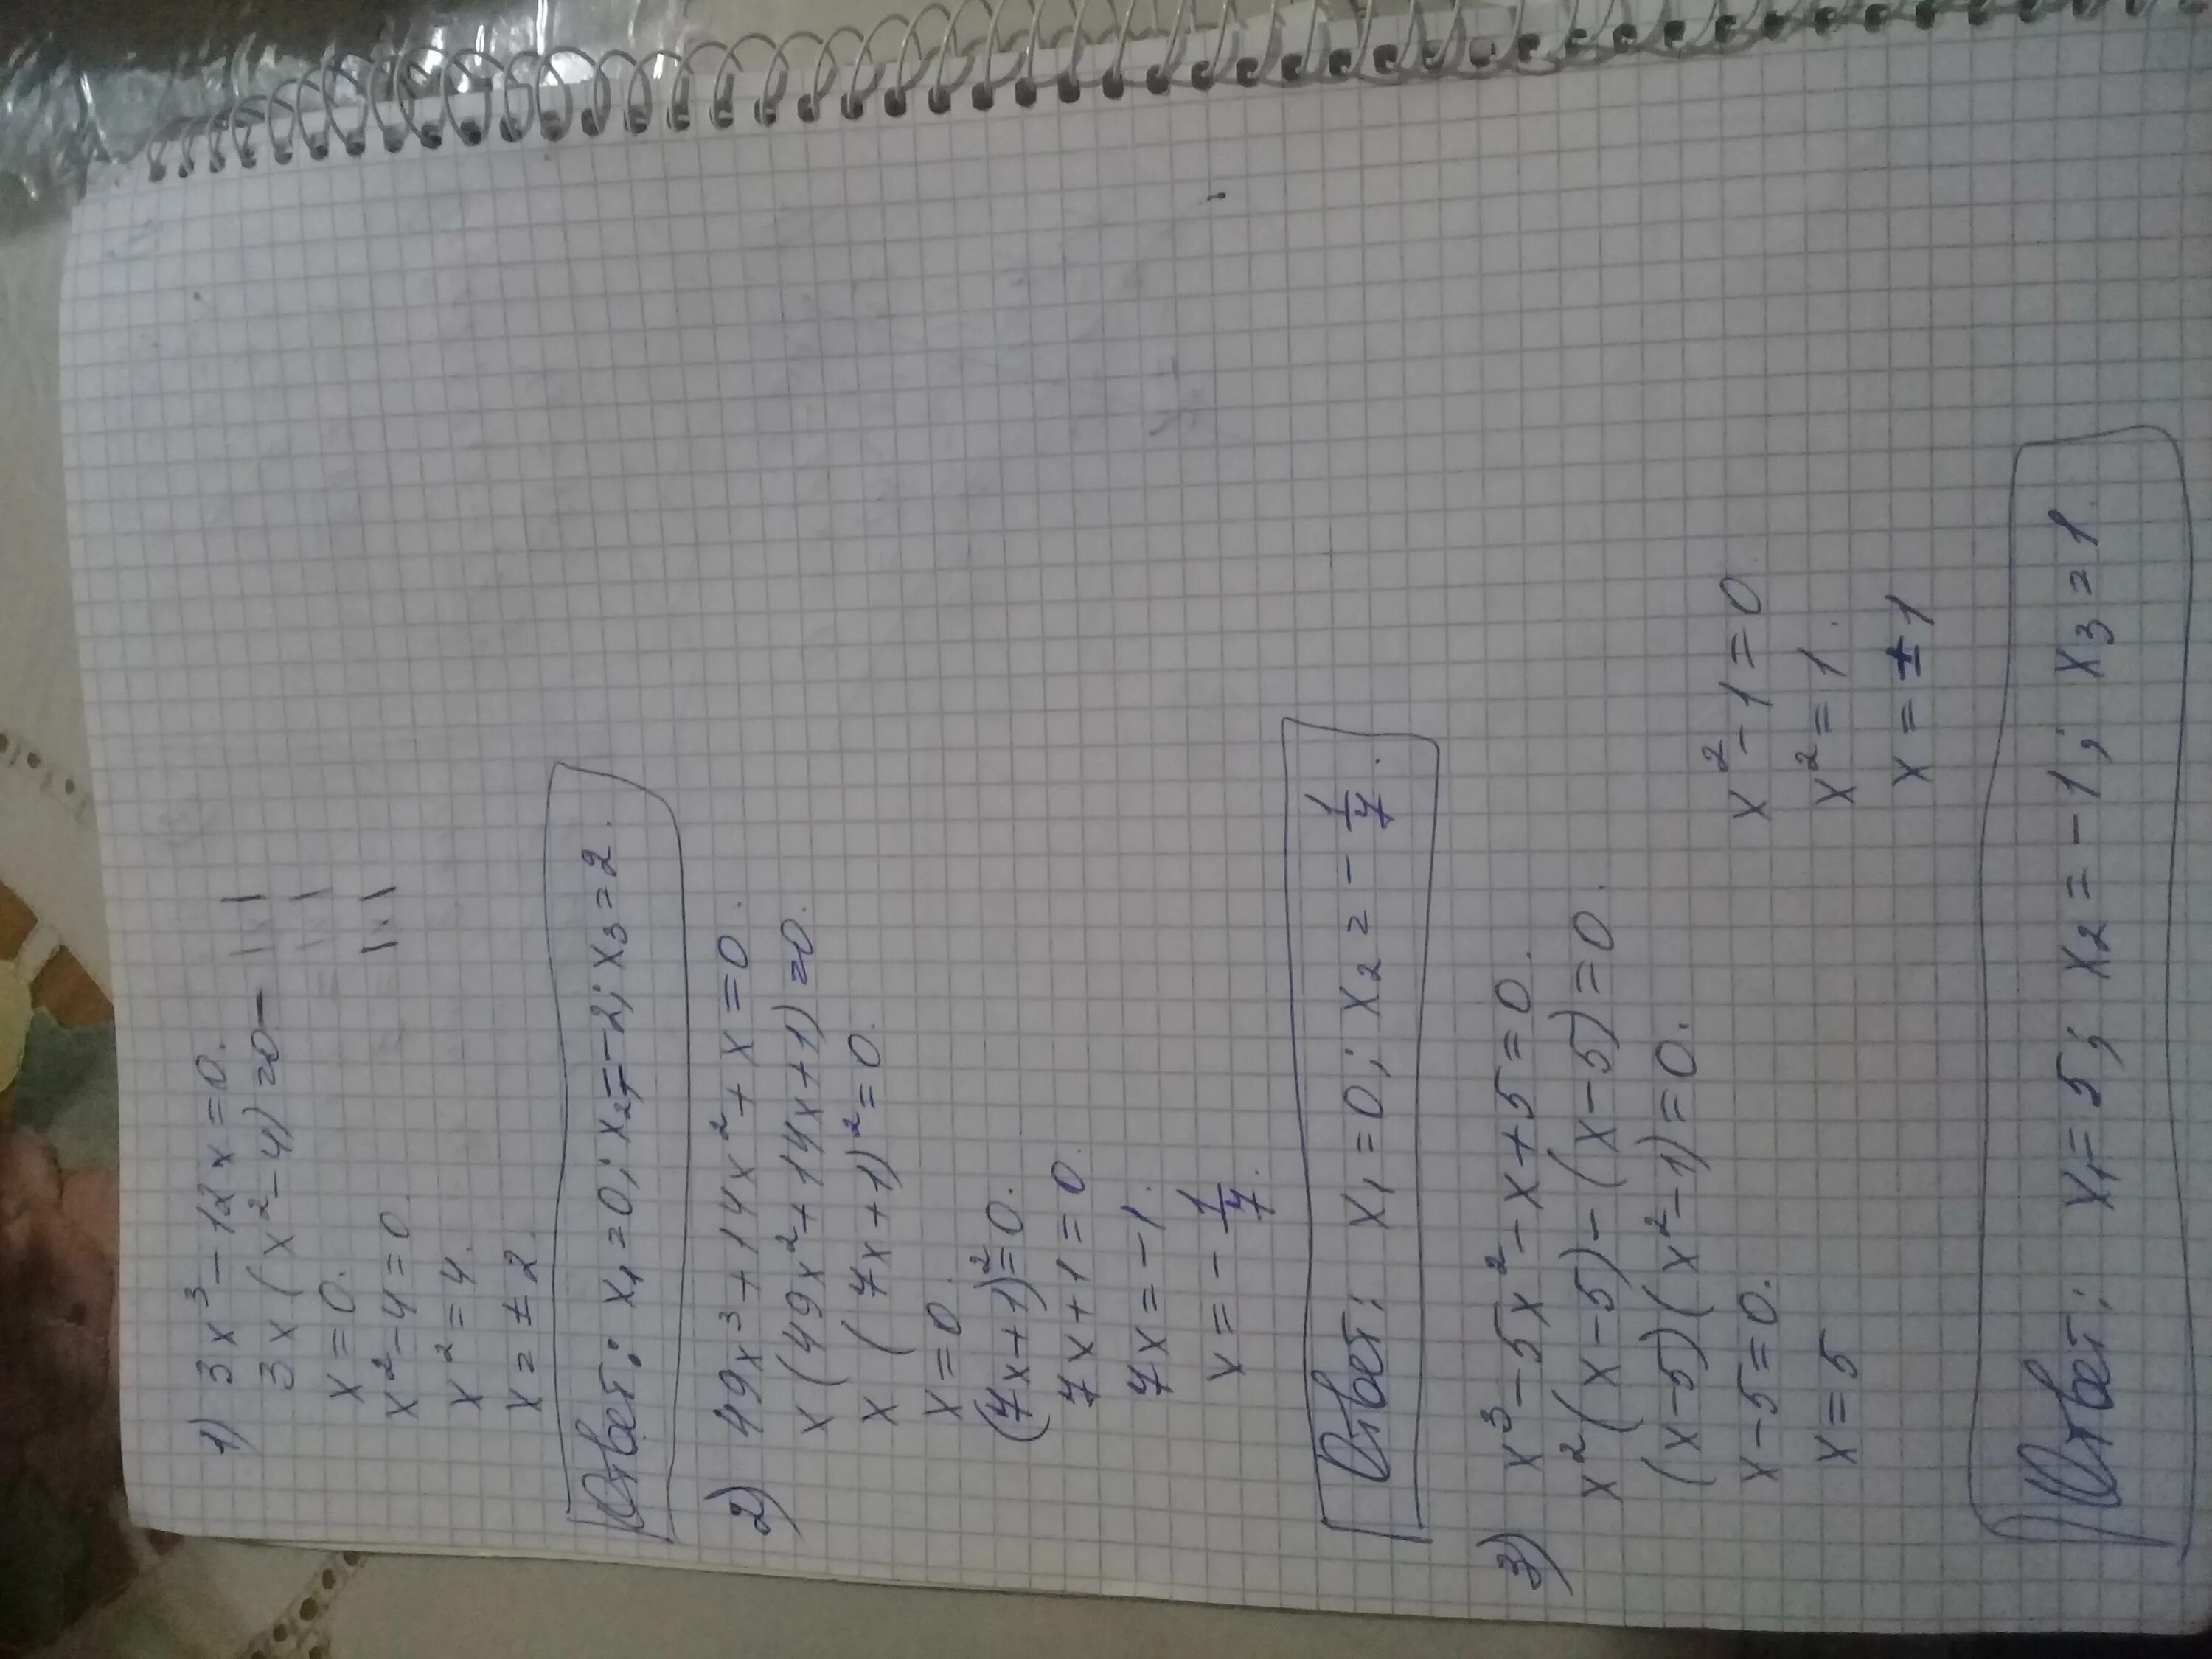 1) 3x³ - 12x = 0.
3x (x² - 4) = 0 -
x = 0.
x² - 4 = 0.
x² = 4.
x = ± 2.
Ответ: x₁ = 0; x₂ = -2; x₃ = 2.
2) 49x³ + 14x² + x = 0.
x (49x² + 14x + 1) = 0.
x (7x + 1)² = 0.
x = 0.
(7x + 1)² = 0.
7x + 1 = 0.
7x = -1.
x = - 1/7.
Ответ: x₁ = 0; x₂ = - 1/7.
3) x³ - 5x² - x + 5 = 0.
x² (x - 5) - (x - 5) = 0.
(x - 5) (x² - 1) = 0.
x - 5 = 0.
x = 5
x² - 1 = 0.
x² = 1.
x = ± 1
Ответ: x₁ = 5; x₂ = -1; x₃ = 1.